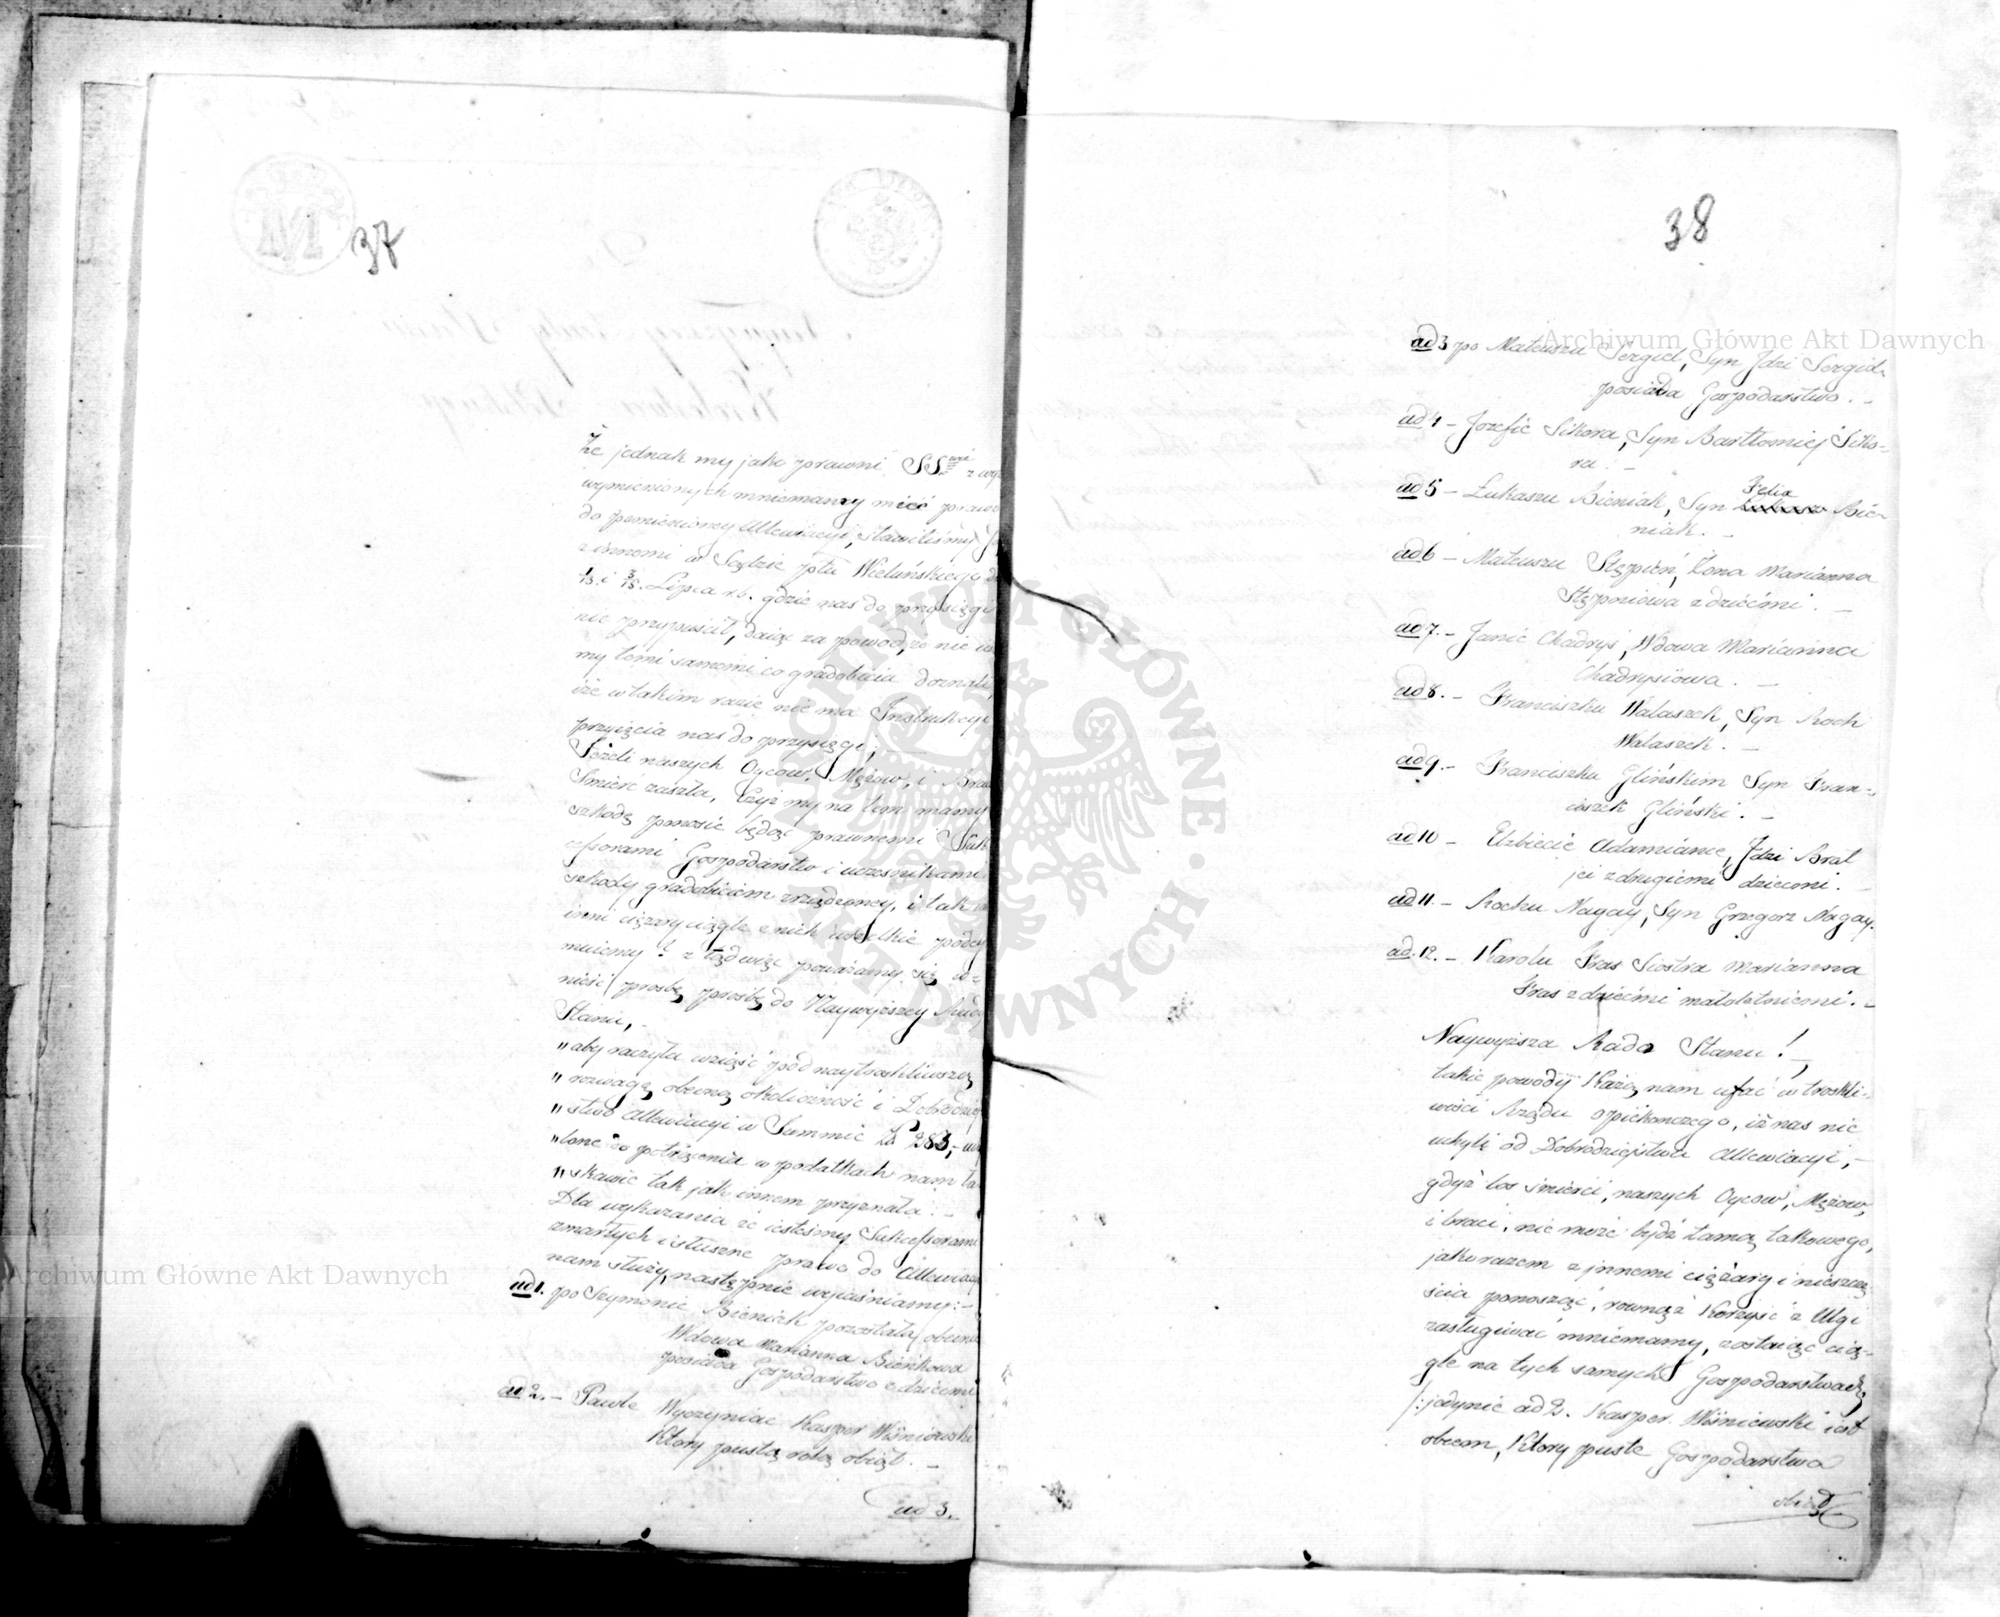 37
Że jednak my jako prawni SS<sup>wie</sup> z wy
wymienionych mniemamy mieć prawo
do pomienioney Allewiacyi, stawiliśmy się
z innemi w Sądzie pttu Wieluńskiego d
1/13 i 3/15 Lipca r.b. gdzie nas do przysięgi
nie przypuścił, daiąc za powód, że nie ies
my temi samemi co gradobicia doznali,
iże w takim razie nie ma Instrukcyi
przyięcia nas do przysięgi; —
Jeżeli naszych Oyców, Mężów, i Braci
Śmierć zaszła, czyż my na tem mamy
szkodę ponosić będąc prawnemi Suk
cessorami Gospodarstw i uczesnikami
szkody gradobiciem zrządzoney, i tak
inni ciężary ciągle z nich wszelkie podey
muiemy? z tąd więc poważamy się w
nieść prośbę prośbę do Naywyższey Rady
Stanu, —
„aby raczyła wziąść pod naytroskliwszą
„rozwagę obecną okoliczność i Dobrodziey
„stwo Allewiacyi w Summie Zł 283,
„lone do potrącenia w podatkach nam ła
„skawie tak jak innem przyznała. —
Dla wykazania że iesteśmy Sukcessorami
zmarłych i słuszne prawo do Allewiacyi
nam służy, następnie wyjaśniamy: —
ad 1. po Szymonie Bieniek pozostała obecnie
Wdowa Marianna Bieńkowa
posiada Gospodarstwo z dziećmi
ad 2. — Pawle Wyczyniac Kasper Wiśniewski
Który pustą rolą obiął. —
ad 3.
38
ad 3 po Mateuszu Sergiel, Syn Jdzi Sergiel
posiada Gospodarstwo. —
ad 4 — Jozefie Sikora, Syn Bartłomiej Siko-
ra. —
ad 5 — Łukaszu Bieniak, Syn Felix Bie-
niak. —
ad 6 — Mateuszu Stępień, Żona Marianna
Stępniowa z dziećmi. —
ad 7. — Janie Chadryś, Wdowa Marianna
Chadrysiowa. —
ad 8. — Franciszku Walaszek, Syn Roch
Walaszek. —
ad 9. — Franciszku Glińskim Syn Fran-
ciszek Gliński. —
ad 10 — Elzbiecie Adamiance, Jdzi Brat
jei z drugiemi dziecmi. —
ad 11. — Rochu Nagay, Syn Grzegorz Nagay.
ad. 12. — Karolu Fras Siostra Marianna
Fras z dziećmi małoletniemi. —
Naywyższa Rada Stanu! —
takie powody Każą nam ufać w troskli-
wości Rządu opiekonczego, iż nas nie
uchyli od Dobrodziejstwa Allewiacyi, —
gdyż los śmierci, naszych Oyców, Mężow,
i braci, nie może bydź tamą takowego,
jako razem z jnnemi ciężary i nieszczę
ścia ponosząć, rownąż Korzyść z Ulgi
zasługiwać mniemamy, zostaiąc cią-
gle na tych samych Gospodarstwach,
/: jedynie ad 2. Kasper Wiśniewski iest
obcem, Który puste Gospodarstwo
obiął